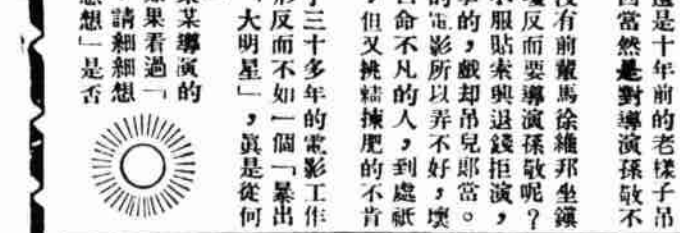 還是十年前的老樣子吊
因當然是對導演孫敬不
沒有前輩馬徐維邦坐鎮
反而要導演孫敬呢？
服貼索興退錢拒演，
的，戲却吊兒郎當。
的電影所以弄不好，壞
命不凡的人，到處祇
，但又挑精揀肥的不肯
三十多年的電影工作
反而不如一個「暴出
大明星」，眞是從何
某導演的
果看過「
請細細想
想」是否